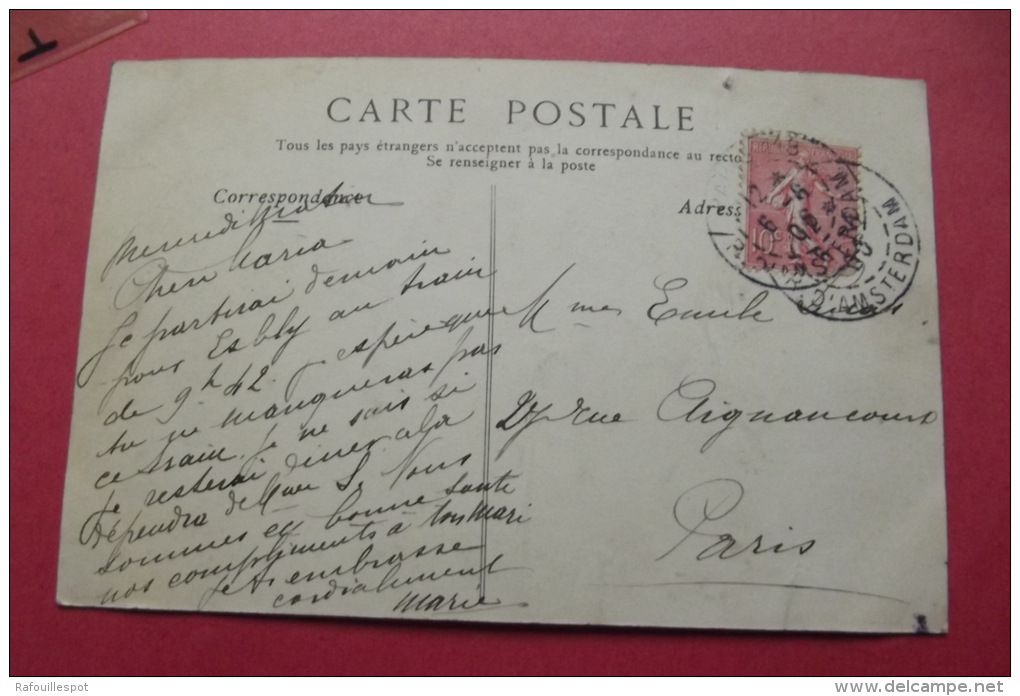 CARTE POSTALE
Tous les pays étrangers n'acceptent pas la correspondance au recto
Se renseigner à la poste
Correspondance
Adress
Mercredi Matin
Chère Maria
Je partirai demain
pour Esbly au train
de 9h 42. j espère que
tu ne manqueras pas
ce train. Je ne sais si
je resterai diner cela
dépendra de Mme S. Nous
sommes en bonne santé
nos compliments à ton Mari
Je t embrasse
cordialement
Marie
10c
D'AMSTERDAM
Mmes Emile
rue Aignancourt
Paris
Rafouillespot
delcampe.net